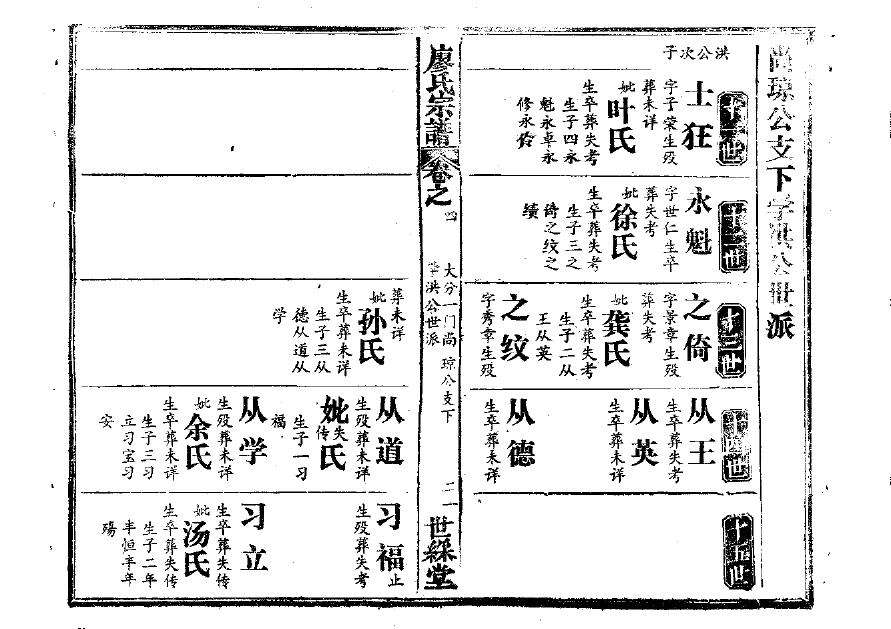 尚琼公支下学洪公世派
十一世
洪公次子
士狂
字子荣生殁
葬未详
妣叶氏
生卒葬失考
生子四永
魁永卓永
修永
十二世
永魁
字世仁生卒
葬失考
妣徐氏
生卒葬失考
生子三之
倚之纹之
绩
十三世
之倚
字景章生殁
葬失考
妣龚氏
生卒葬失考
生子二从
王从英
之纹
字秀章生殁
十四世
从王
生卒葬失考
从英
生卒葬未详
从德
生卒葬未详
十五世
廖氏宗譜
卷之四
大分一门尚琼公支下
学洪公世派
二一
世綵堂
葬未详
妣孙氏
生卒葬未详
生子三从
德从道从
学
从道
生殁葬未详
妣失传氏
生子一习
福
从学
生殁葬未详
妣余氏
生卒葬未详
生子三习
立习宝习
安
习福止
生殁葬失考
习立
生卒葬失传
妣汤氏
生卒葬失传
生子二年
丰恒丰年
殇